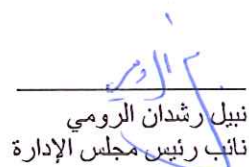 نبيل رشدان الرومي
نائب رئيس مجلس الإدارة